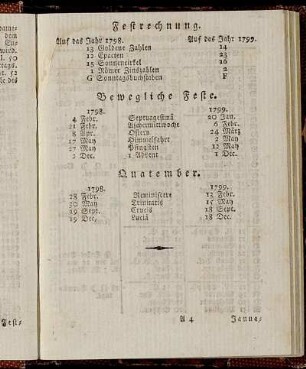 Festrechnung.
Auf das Jahr 1798. Auf das Jahr 1799.
13 Goldene Zahlen 14
12 Epacten 23
15 Sonnencirkel 16
1 Römer Zinszahlen 2
G Sonntagsbuchstaben F
Bewegliche Feste.
1798. 1799.
4 Febr. Septuagesimä 20 Jan.
21 Febr. Aschermittwoche 6 Febr.
8 Apr. Ostern 24 März
17 May Himmelfahrt 2 May
27 May Pfingsten
2 Dec. 1 Advent 1 Dec.
Quatember.
1798. 1799.
28 Febr. Reminiscere 13 Febr.
30 May Trinitatis 15 May
19 Sept. Crucis 18 Sept.
19 Dec. Luciä 18 Dec.
Fest, A 4 Jenner